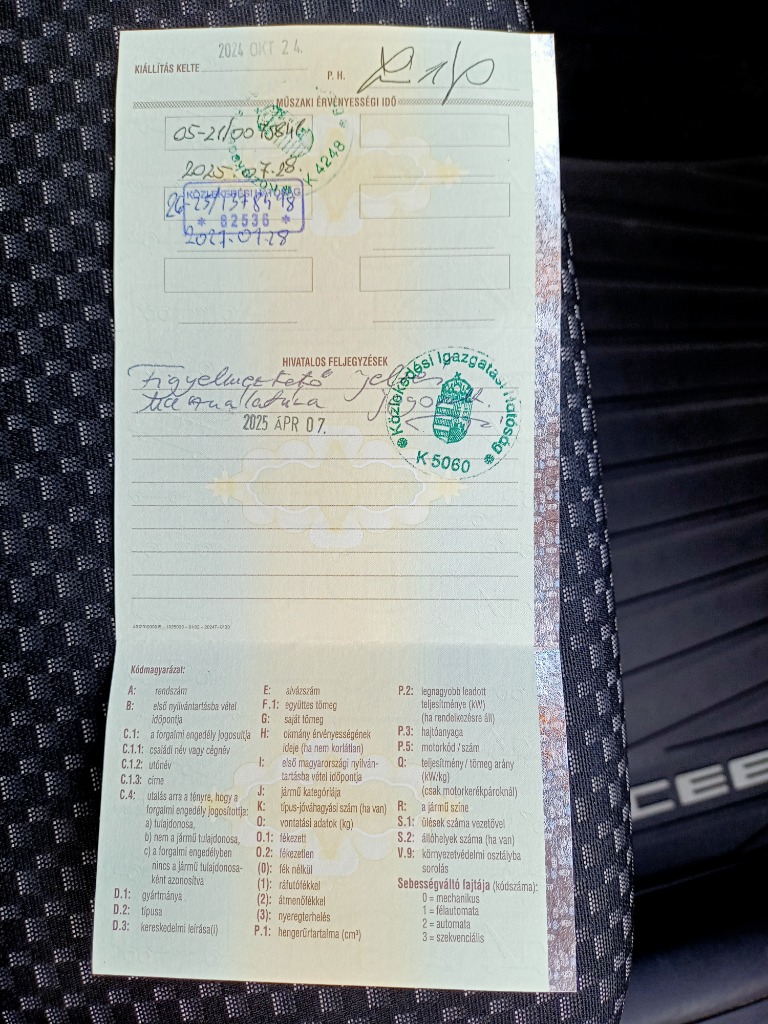 2024 OKT 24.
KIÁLLÍTÁS KELTE
P. H.
MŰSZAKI ÉRVÉNYESSÉGI IDŐ
K 4248
2025. 07.28
KÖZLEKEDÉSI HATÓSÁG
* 82536 *
2027-07-28
HIVATALOS FELJEGYZÉSEK
Figyelmeztető
használatára
2025 ÁPR 07.
Közlekedési Igazgatási Hatóság
K 5060
Kódmagyarázat:
A: rendszám
B: első nyilvántartásba vétel
időpontja
C.1: a forgalmi engedély jogosultja
C.1.1: családi név vagy cégnév
C.1.2: utónév
C.1.3: címe
C.4: utalás arra a tényre, hogy a
forgalmi engedély jogosítottja:
a) tulajdonosa,
b) nem a jármű tulajdonosa,
c) a forgalmi engedélyben
nincs a jármű tulajdonosa-
ként azonosítva
D.1: gyártmánya
D.2: típusa
D.3: kereskedelmi leírása(i)
E: alvázszám
F.1: együttes tömeg
G: saját tömeg
H: okmány érvényességének
ideje (ha nem korlátlan)
I: első magyarországi nyilván-
tartásba vétel időpontja
J: jármű kategóriája
K: típus-jóváhagyási szám (ha van)
O: vontatási adatok (kg)
O.1: fékezett
O.2: fékezetlen
(0): fék nélkül
(1): ráfutófékkel
(2): átmenőfékkel
(3): nyeregterhelés
P.1: hengerűrtartalma (cm³)
P.2: legnagyobb leadott
teljesítménye (kW)
(ha rendelkezésre áll)
P.3: hajtóanyaga
P.5: motorkód / szám
Q: teljesítmény / tömeg arány
(kW/kg)
(csak motorkerékpároknál)
R: a jármű színe
S.1: ülések száma vezetővel
S.2: állóhelyek száma (ha van)
V.9: környezetvédelmi osztályba
sorolás
Sebességváltó fajtája (kódszáma):
0 = mechanikus
1 = félautomata
2 = automata
3 = szekvenciális
CEE